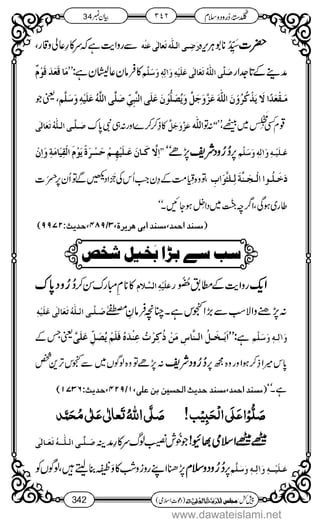 بیان نمبر34 ۳۴۲ گلدستۂ درود و سلام
حضرت سَیِّدُنا ابو ہریرہ رَضِیَ اللّٰہُ تَعَالٰی عَنْہ سے روایت ہے کہ سرکارِ عالی وقار،
مدینے کے تاجدار صَلَّی اللّٰہُ تَعَالٰی عَلَیْہِ وَاٰلِہٖ وَسَلَّم کا فرمانِ عالیشان ہے: ’’مَا قَعَدَ قَوْمٌ
مَقْعَدًا لَا یَذْکُرُوْنَ اللّٰہَ عَزَّوَجَلَّ وَیُصَلُّوْنَ عَلَی النَّبِیِّ صَلَّی اللّٰہُ عَلَیْہِ وَسَلَّم، یعنی جو
قوم کسی مجلس میں بیٹھے،’’ نہ تو اللّٰہ عَزَّوَجَلَّ کا ذکر کرے اور نہ ہی نبی پاک صَلَّی اللّٰہُ تَعَالٰی
عَلَیْہِ وَاٰلِہٖ وَسَلَّم پر دُرُودِ شریف پڑھے‘‘ اِلَّا کَانَ عَلَیْہِمْ حَسْرَۃً یَوْمَ الْقِیَامَۃِ وَاِنْ
دَخَلُوا الْجَنَّۃَ لِلثَّوَابِ، تو وہ قیامت کے دن جب اُس کی جزا دیکھیں گے تو اُن پر حسرت
طاری ہوگی، اگرچہ جنّت میں داخل ہوجائیں۔‘‘
(مسند احمد،مسند ابی ھریرۃ،۴۸۹/۳،حدیث:۹۹۷۲)
سب سے بڑا بخیل شخص
ایک روایت کے مطابق حُضُور عَلَیْہِ السَّلَام کا نامِ مبارک سُن کر دُرُودِ پاک
نہ پڑھنے والا سب سے بڑا کنجوس ہے۔ چنانچہ فرمانِ مُصْطَفٰے صَلَّی اللّٰہُ تَعَالٰی عَلَیْہِ
وَاٰلِہٖ وَسَلَّم ہے: ’’اَبْخَلُ النَّاسِ مَنْ ذُکِرْتُ عِنْدَہٗ فَلَمْ یُصَلِّ عَلَیَّ یعنی جس کے
پاس میرا ذکر ہو اور وہ مجھ پر دُرُودِ شریف نہ پڑھے تو وہ لوگوں میں سے کنجوس ترین شخص
ہے۔‘‘ (مسند احمد،مسند حدیث الحسین بن علی،۴۲۹/۱،حدیث:۱۷۳۶)
صَلُّوْا عَلَی الْحَبِیْب! صَلَّی اللّٰہُ تَعَالٰی عَلٰی مُحَمَّد
میٹھے میٹھے اسلامی بھائیو! خوش نصیب لوگ سرکارِ مدینہ صَلَّی اللّٰہُ تَعَالٰی
عَلَیْہِ وَاٰلِہٖ وَسَلَّم پر دُرُود و سلام پڑھنا اپنے روز و شب کا وظیفہ بنا لیتے ہیں، جو لوگوں کو
342
www.dawateislami.net